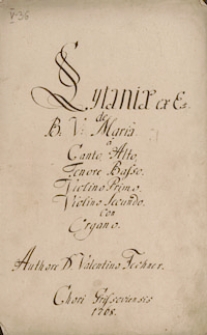 Lytaniæ ex Es.
de
B. V. Maria
a
Canto, Alto,
Tenore Basso,
Violino Primo.
Violino Secundo.
con
Organo.
Authore D. Valentino Techner.
Chori Grissoviensis
1768.